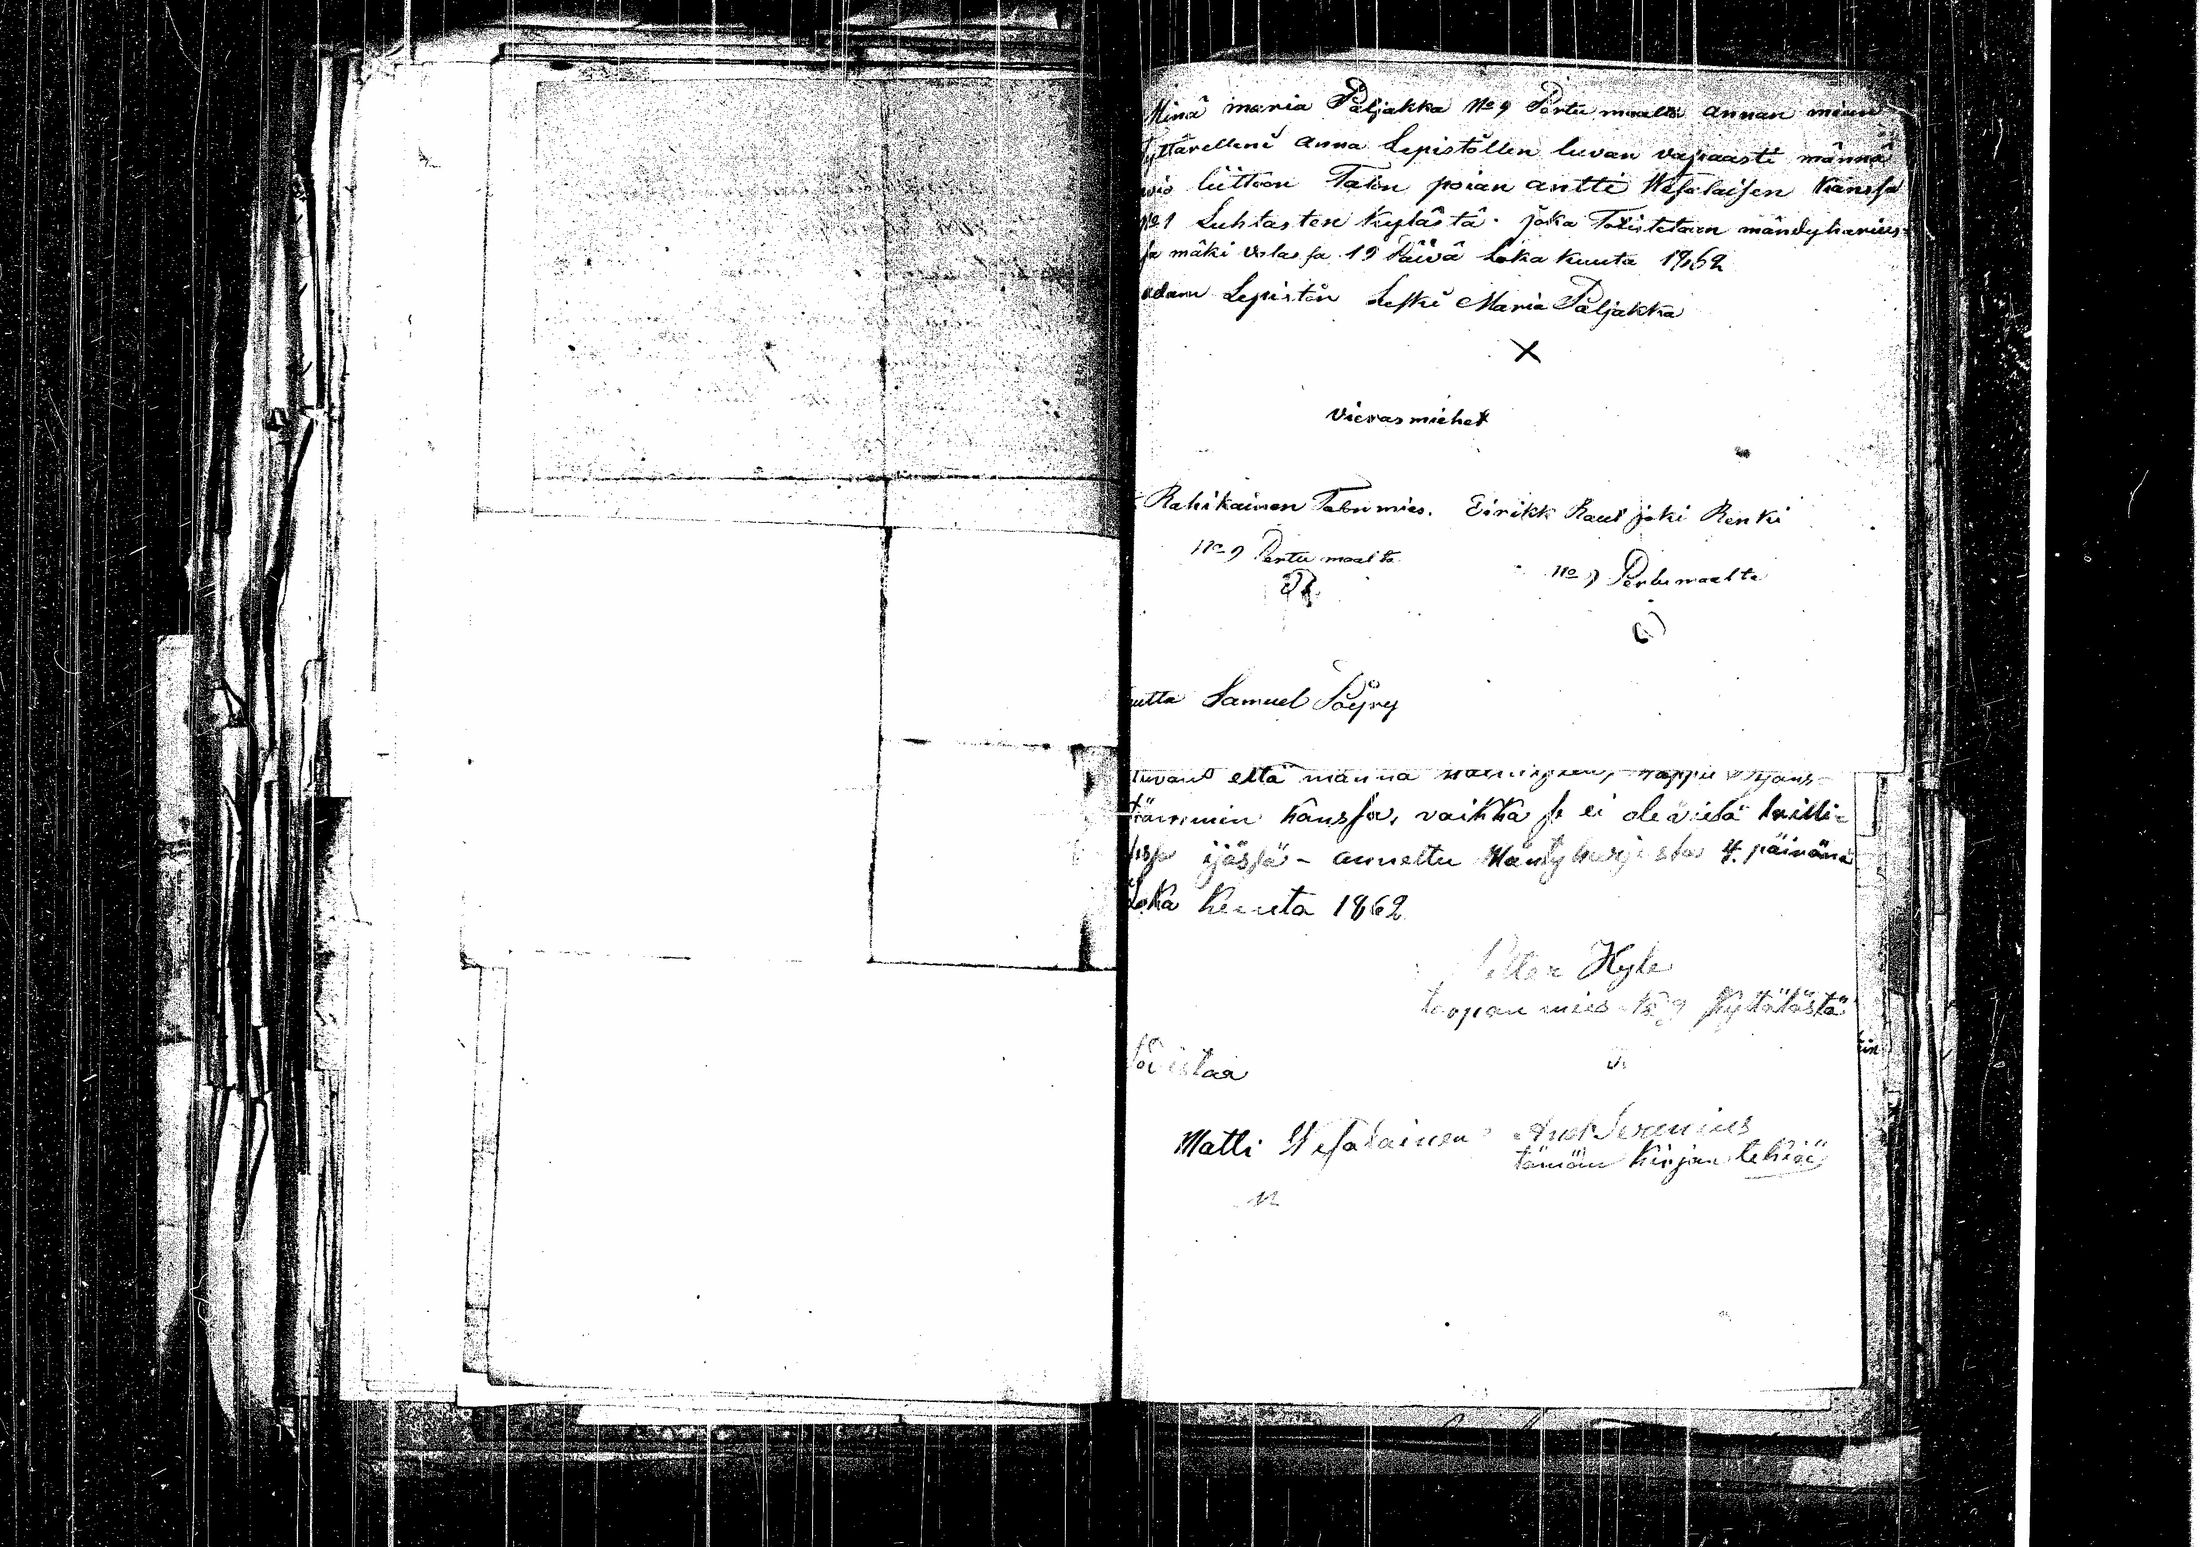 Minä maria Paljakka No 9 Pertu maalta annan minun
tyttärelleni anna Lepistöllen luvan vapaasti männä
avio liittoon Talon poian antti Wesalaisen kanssa
No 1 Luhtasten kylästä. joka Toistetaan mändyharius-
sa mäki Walassa 19 Päivä loka kuuta 1862
adam Lepistön Leski Maria Paljakka
X
vieras miehet
Rahikainen Talon mies. Eirikk Raut joki Renki
No 9 Pertu maalta
No 9 Pertu maalta
utta Samuel Pöyry
että männä
kanssa, vaikka se ei ole vielä lailli-
sissa ijässä - annettu Mäntyharjusta 4. päivänä
Loka kuuta 1862
Petter Hyle
No 9 Kyttälästä
Toistaa
Matti Wesalainen
tämän kirjan tekiä